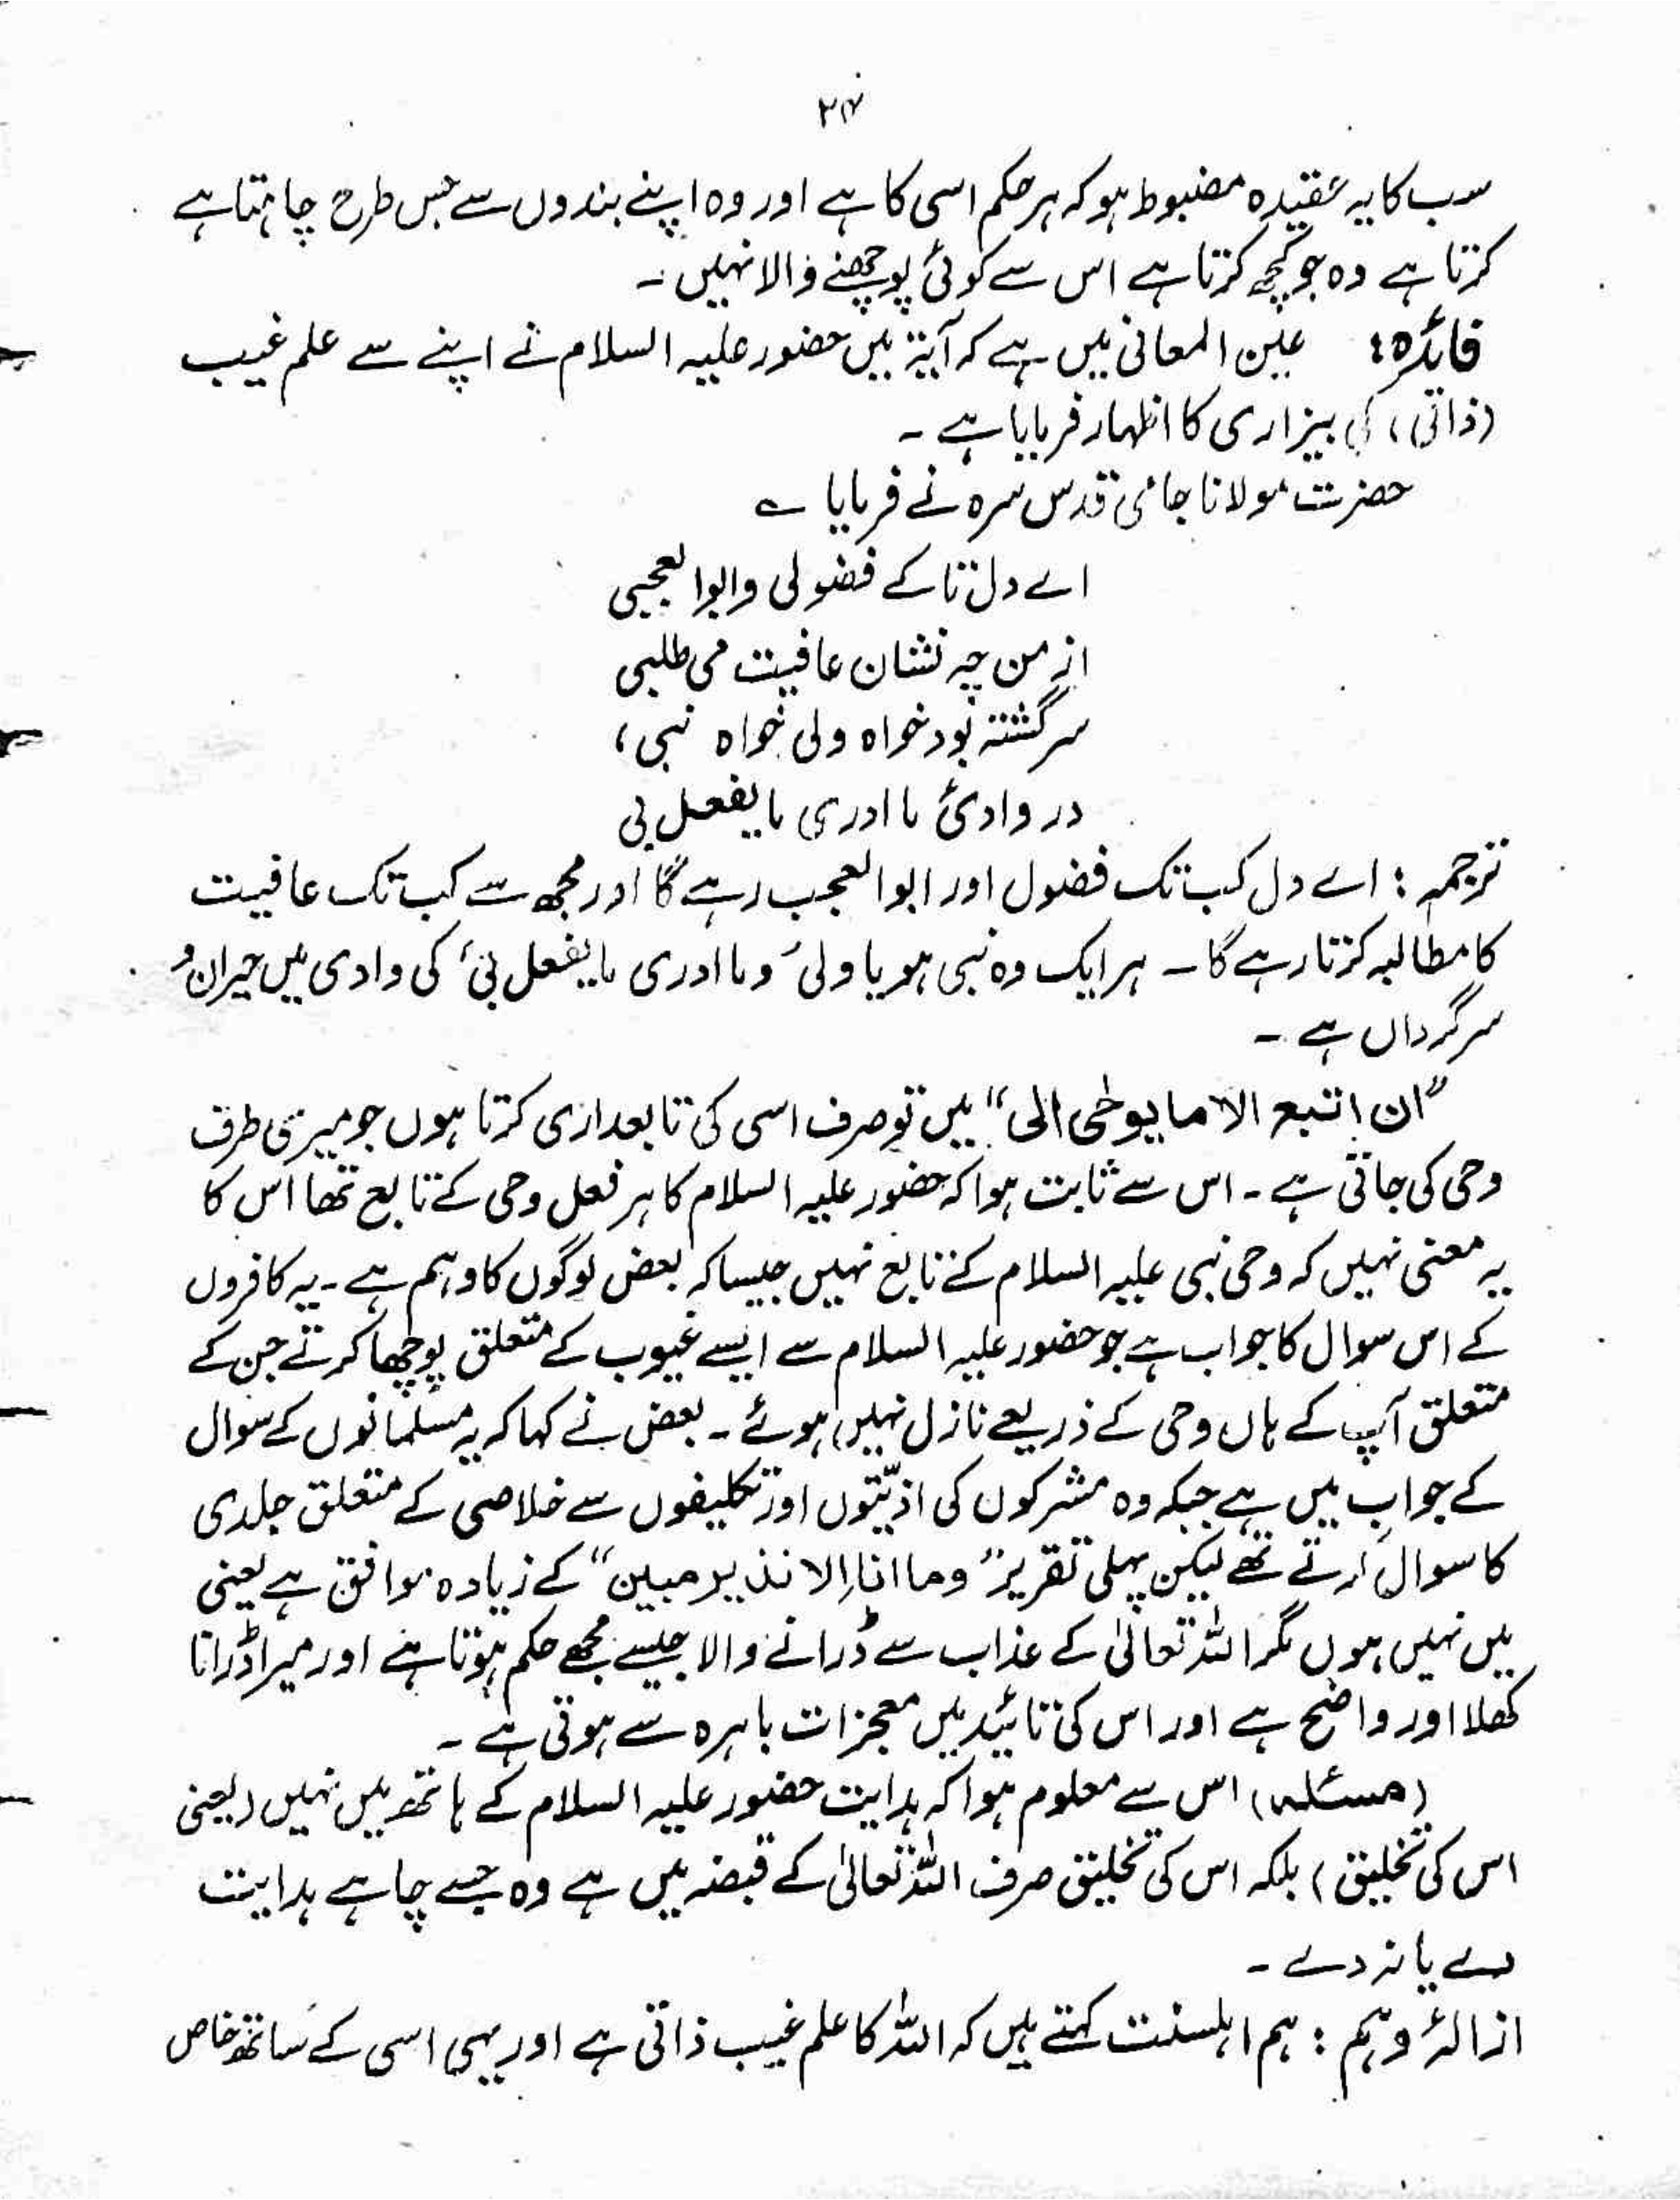 ۲۴
سب کا یہ عقیدہ مضبوط ہو کہ ہر حکم اسی کا ہے اور وہ اپنے بندوں سے جس طرح چاہتا ہے
کرتا ہے وہ جو کچھ کرتا ہے اس سے کوئی پوچھنے والا نہیں ۔
فائدہ : عین المعانی میں ہے کہ آیۃ میں حضور علیہ السلام نے اپنے سے علم غیب
(ذاتی) کی بیزاری کا اظہار فرمایا ہے ۔
حضرت مولانا جامی قدس سرہ نے فرمایا ؎
اے دل تا کے فضولی و ابوا لعجبی
از من چہ نشان عافیت می طلبی
سرگشتہ بود خواہ ولی خواہ نبی ،
در وادئ ما ادری ما یفعل بی
ترجمہ : اے دل کب تک فضول اور ابوا لعجب رہے گا اور مجھ سے کب تک عافیت
کا مطالبہ کرتا رہے گا ۔ ہر ایک وہ نبی ہو یا ولی ’ وما ادری ما یفعل بی ‘ کی وادی میں حیران و
سرگرداں ہے ۔
”ان اتبع الا ما یوحٰی الی“ میں تو صرف اسی کی تابعداری کرتا ہوں جو میری طرف
وحی کی جاتی ہے ۔ اس سے ثابت ہوا کہ حضور علیہ السلام کا ہر فعل وحی کے تابع تھا اس کا
یہ معنی نہیں کہ وحی نبی علیہ السلام کے تابع نہیں جیسا کہ بعض لوگوں کا وہم ہے ۔ یہ کافروں
کے اس سوال کا جواب ہے جو حضور علیہ السلام سے ایسے غیوب کے متعلق پوچھا کرتے جن کے
متعلق آپ کے ہاں وحی کے ذریعے نازل نہیں ہوئے ۔ بعض نے کہا کہ یہ مسلمانوں کے سوال
کے جواب میں ہے جبکہ وہ مشرکوں کی اذیّتوں اور تکلیفوں سے خلاصی کے متعلق جلدی
کا سوال کرتے تھے لیکن پہلی تقریر ”وما انا الا نذیر مبین“ کے زیادہ موافق ہے یعنی
میں نہیں ہوں مگر اللہ تعالیٰ کے عذاب سے ڈرانے والا جیسے مجھے حکم ہوتا ہے اور میرا ڈرانا
کھلا اور واضح ہے اور اس کی تائید میں معجزات باہرہ سے ہوتی ہے ۔
(مسئلہ) اس سے معلوم ہوا کہ ہدایت حضور علیہ السلام کے ہاتھ میں نہیں (یعنی
اس کی تخلیق) بلکہ اس کی تخلیق صرف اللہ تعالیٰ کے قبضہ میں ہے وہ جسے چاہے ہدایت
دے یا نہ دے ۔
ازالۂ وہم : ہم اہلسنت کہتے ہیں کہ اللہ کا علم غیب ذاتی ہے اور یہی اسی کے ساتھ خاص